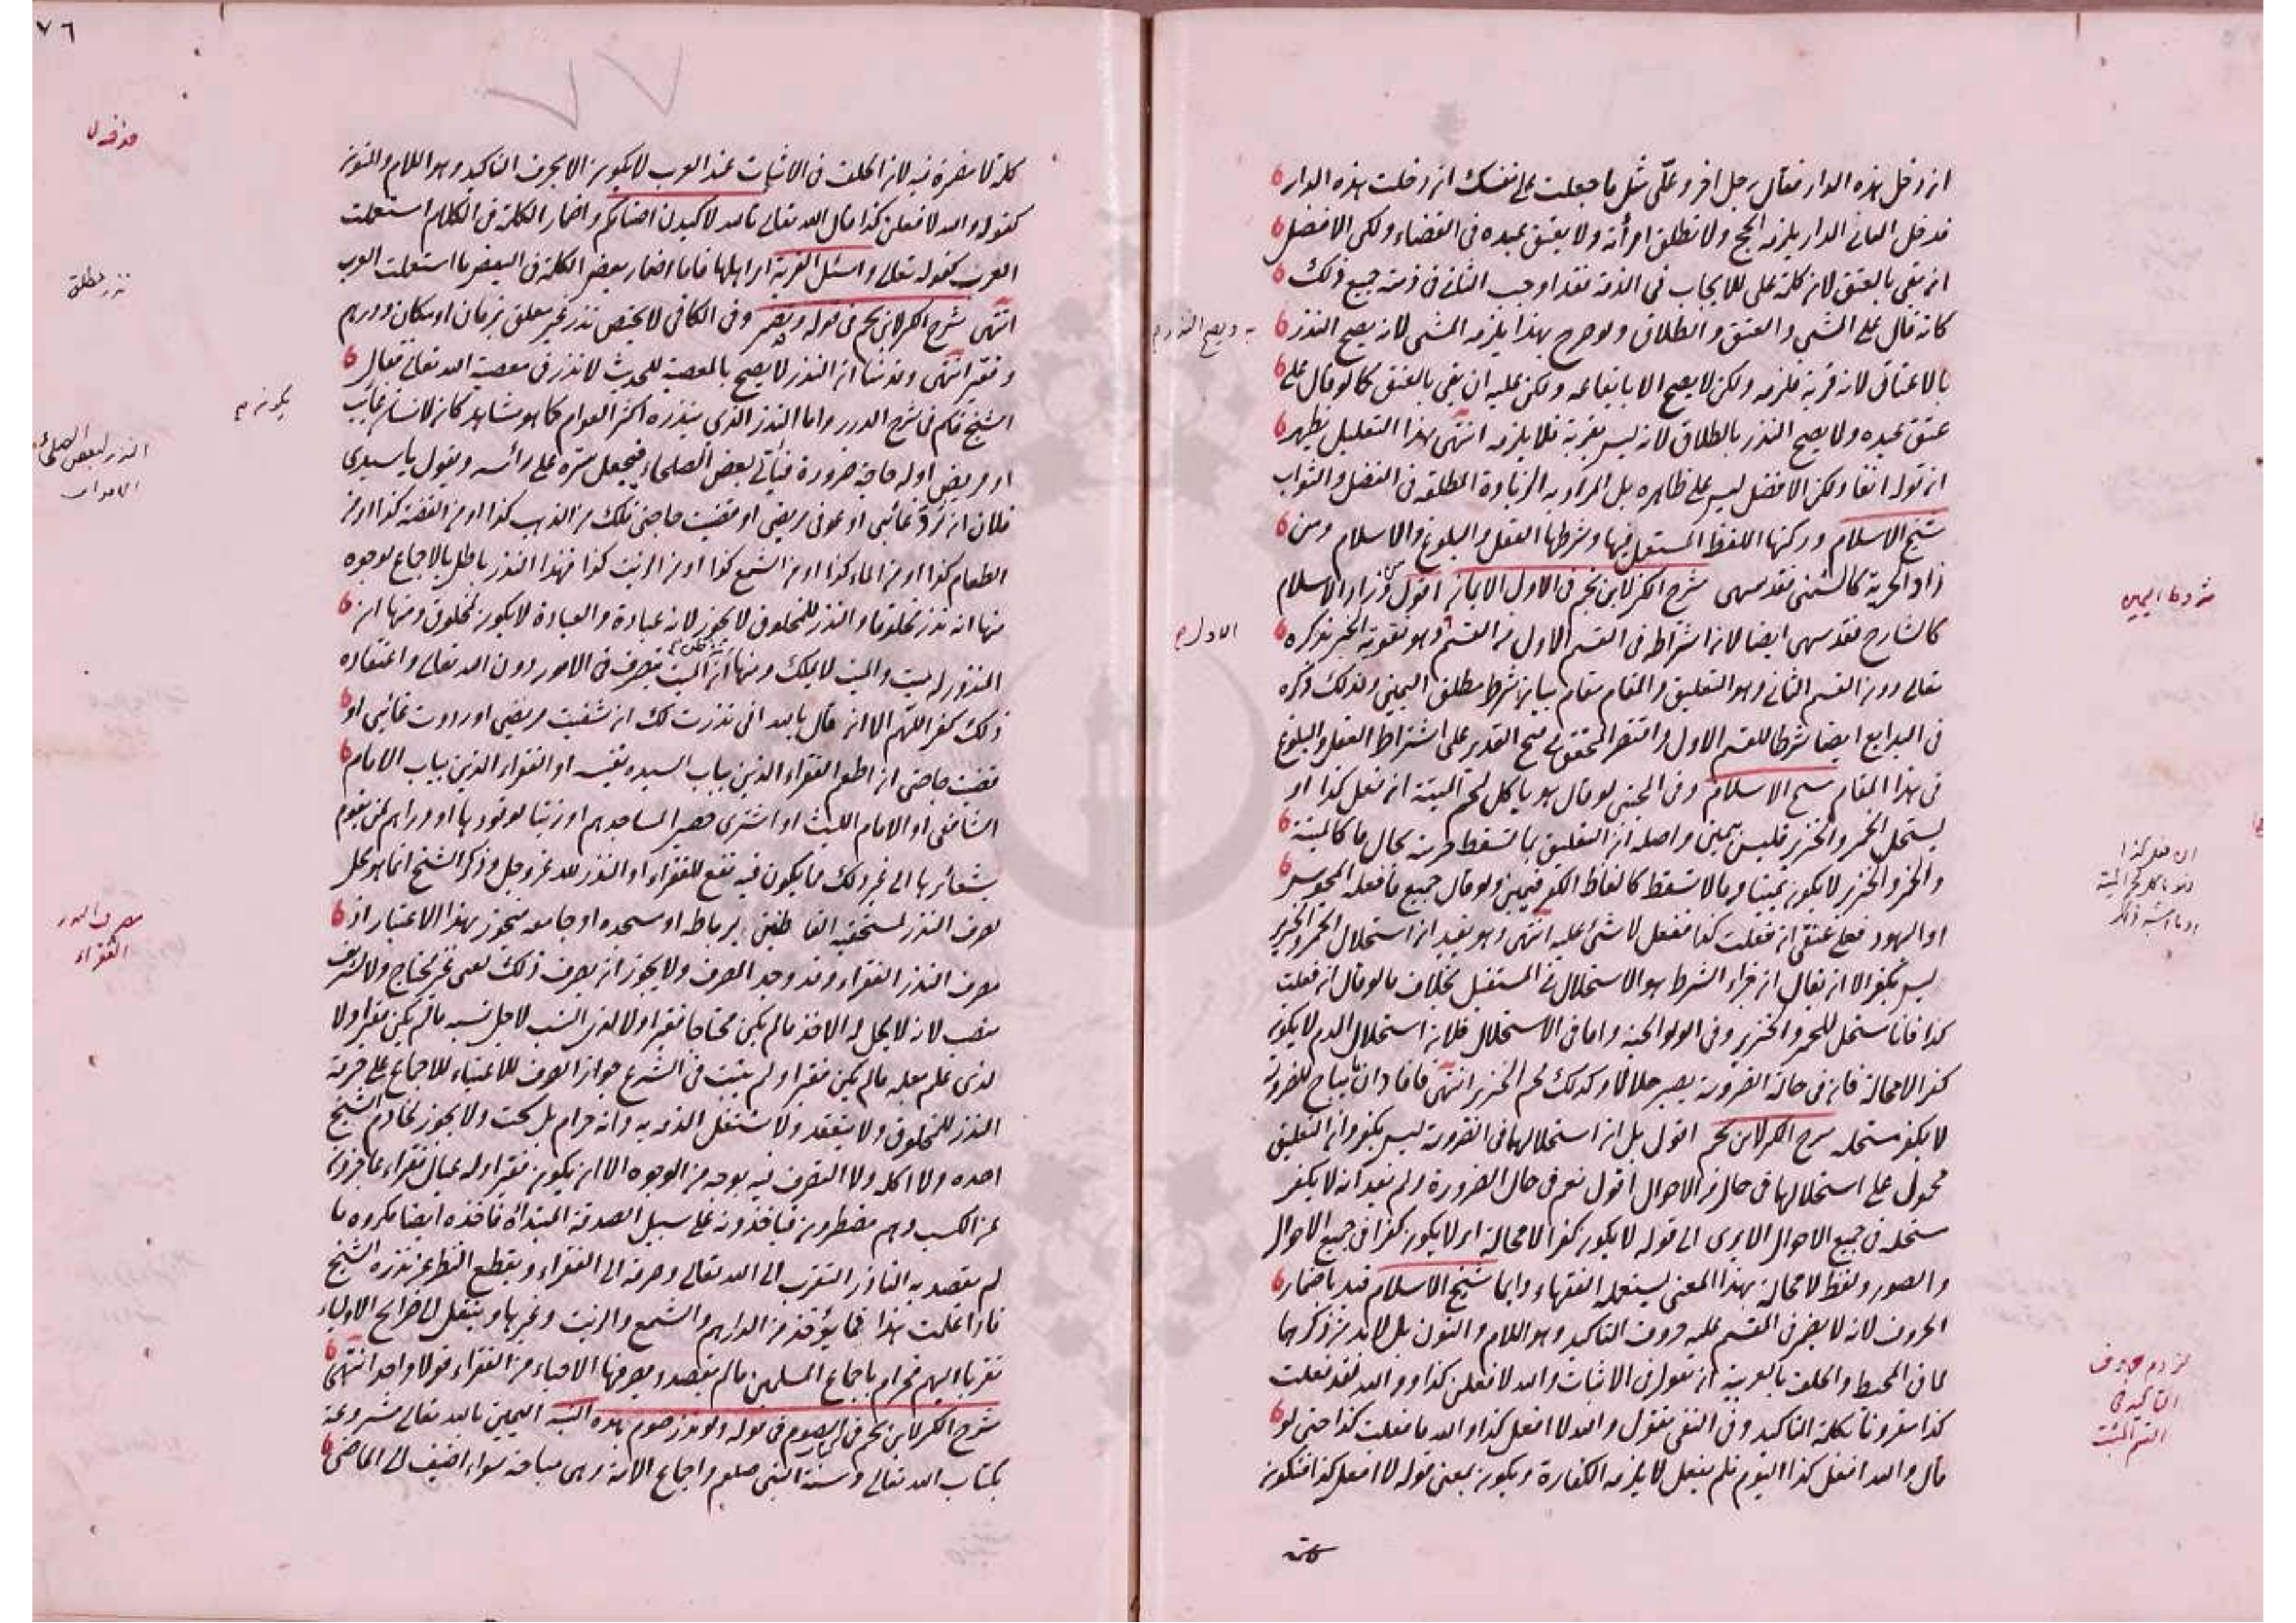 ان دخل هذه الدار فقال رجل اخر وعلى مثل ما جعلت على نفسك ان دخلت هذه الدار
فدخل الثاني الدار يلزمه الحج ولا تطلق امرأته ولا يعتق عبده في القضاء ولكن الافضل
ان يفي بالعتق لان كلمة على للايجاب في الذمة فقد اوجب الثاني في ذمته جميع ذلك
كانه قال علي المشي والعتق والطلاق ولو صرح بهذا يلزمه المشي لانه يصح النذر
بالاعتاق لانه قربة فلزمه ولكن لا يصح الا بايقاعه ولكن عليه ان يفي بالعتق كما لو قال علي
عتق عبده ولا يصح النذر بالطلاق لانه ليس بقربة فلا يلزمه انتهى بهذا التعليل يظهر
ان قوله انفا ولكن الافضل ليس على ظاهره بل المراد به الزيادة المطلقة في الفضل والثواب
شيخ الاسلام وركنها اللفظ المستعمل فيها وشرطها العقل والبلوغ والاسلام ومن
زاد الحرية كالشمني فقد سهى شرح الكنز لابن نجيم في الاول الايمان اقول ومن زاد الاسلام
كالشارح فقد سهى ايضا لان اشتراطه في القسم الاول من القسم وهو تقوية الخبر بذكره
تعالى دون القسم الثاني وهو التعليق والمقام مقام بيان شرط مطلق اليمين ولذلك ذكره
في البدايع ايضا شرطا للقسم الاول واقتصر المحقق في فتح القدير على اشتراط العقل والبلوغ
في هذا المقام شيخ الاسلام وفي المجتبى لو قال هو ياكل لحم الميتة ان فعل كذا او
يستحل الخمر والخنزير فليس بيمين واصله ان التعليق بما تسقط حرمته بحال ما كالميتة
والخمر والخنزير لا يكون يمينا وما لا تسقط كالفاظ الكفر فيمين ولو قال جميع ما فعله المجوس
او اليهود فعلى عنقي ان فعلت كذا ففعل لا شئ عليه انتهى وهو يفيد ان استحلال الخمر والخنزير
ليس بكفر الا ان يقال ان جزاء الشرط هو الاستحلال في المستقبل بخلاف ما لو قال ان فعلت
كذا فانا مستحل للخمر والخنزير وفي الولوالجية واما في الاستحلال فلان استحلال الدم لا يكون
كفرا لا محالة فانه في حالة الضرورة يصير حلالا وكذلك لحم الخنزير انتهى فافاد ان ما يباح للضرورة
لا يكفر مستحله شرح الكنز لابن نجيم اقول بل ان استحلالها في الضرورة ليس بكفر وان التعليق
محمول على استحلالها في حال من الاحوال اقول نعم في حال الضرورة ولم يفيد انه لا يكفر
مستحله في جميع الاحوال الا يرى الى قوله لا يكون كفرا لا محالة اى لا يكون كفرا في جميع الاحوال
والصور ولفظ لا محالة بهذا المعنى يستعمله الفقهاء دايما شيخ الاسلام قيد باضمار
الحروف لانه لا يضمر في المقسم عليه حروف التاكيد وهو اللام والنون بل لا بد من ذكرهما
لما في المحيط والحلف بالعربية ان تقول في الاثبات والله لافعلن كذا ووالله لقد فعلت
كذا مقرونا بكلمة التاكيد وفي النفي تقول والله لا افعل كذا والله ما فعلت كذا حتى لو
قال والله افعل كذا اليوم فلم يفعل لا يلزمه الكفارة ويكون بمعنى قوله لا افعل كذا فتكون
كلمة
ويصح النذر
الاول
شروط اليمين
ان فعل كذا
فهو ياكل لحم الميتة
او ما اشبه ذلك
لزوم حروف
التاكيد في
القسم المثبت
٧٦
كلمة لا مضمرة فيه لان الحلف في الاثبات عند العرب لا يكون الا بحرف التاكيد وهو اللام والنون
كقوله والله لافعلن كذا قال الله تعالى تالله لاكيدن اصنامكم واضمار الكلمة في الكلام استعملت
العرب كقوله تعالى واسئل القرية اى اهلها فاما اضمار بعض الكلمة في البعض ما استعملت العرب
انتهى شرح الكنز لابن نجيم في قوله وتضمر وفي الكافي لا يختص نذر غير معلق بزمان او مكان ودرهم
وفقير انتهى وقدمنا ان النذر لا يصح بالمعصية للحديث لا نذر في معصية الله تعالى فقال
الشيخ قاسم في شرح الدرر واما النذر الذي ينذره اكثر العوام كما هو مشاهد كان لانسان غائب
او مريض او له حاجة ضرورة فيأتي بعض الصلحاء فيجعل ستره على رأسه ويقول يا سيدى
فلان ان رد غائبي او عوفي مريضي او قضيت حاجتي فلك من الذهب كذا او من الفضة كذا او من
الطعام كذا او من الماء كذا او من الشمع كذا او من الزيت كذا فهذا النذر باطل بالاجماع لوجوه
منها انه نذر لمخلوق والنذر للمخلوق لا يجوز لانه عبادة والعبادة لا يكون لمخلوق ومنها ان
المنذور له ميت والميت لا يملك ومنها انه ظن ان الميت يتصرف في الامور دون الله تعالى واعتقاده
ذلك كفر اللهم الا ان قال يا الله اني نذرت لك ان شفيت مريضي او رددت غائبي او
قضيت حاجتي ان اطعم الفقراء الذين بباب السيدة نفيسة او الفقراء الذين بباب الامام
الشافعي او الامام الليث او اشترى حصير المساجدهم او زيتا لوقودها او دراهم لمن يقوم
بشعائرها الى غير ذلك مما يكون فيه نفع للفقراء او النذر لله عز وجل وذكر الشيخ انما هو محل
لصرف النذر لمستحقيه القاطنين برباطه او مسجده او جامعه فيجوز بهذا الاعتبار اذ
مصرف النذر الفقراء وقد وجد المصرف ولا يجوز ان يصرف ذلك لغني غير محتاج ولا لشريف
منصب لانه لا يحل له الاخذ ما لم يكن محتاجا فقيرا ولا لذى النسب لاجل نسبه ما لم يكن فقيرا ولا
لذى علم لعلمه ما لم يكن فقيرا ولم يثبت في الشرع جواز الصرف للاغنياء للاجماع على حرمة
النذر للمخلوق ولا ينعقد ولا تشتغل الذمة به وانه حرام بل سحت ولا يجوز لخادم الشيخ
اخذه ولا اكله ولا التصرف فيه بوجه من الوجوه الا ان يكون فقيرا وله عيال فقراء عاجزون
عن الكسب وهم مضطرون فيأخذونه على سبيل الصدقة المبتدأة فاخذه ايضا مكروه ما
لم يقصد به الناذر التقرب الى الله تعالى وصرفه الى الفقراء ويقطع النظر عن نذره الشيخ
فاذا علمت هذا فما يؤخذ من الدراهم والشمع والزيت وغيرها وينقل الى ضرائح الاولياء
تقربا اليهم فحرام باجماع المسلمين ما لم يقصدوا بصرفها الاحياء من الفقراء قولا واحدا انتهى
شرح الكنز لابن نجيم في الصوم في قوله ولو نذر صوم هذه السنة اليمين بالله تعالى مشروعة
بكتاب الله تعالى وسنة النبي صلعم واجماع الامة وهي مباحة سواء اضيف الى الماضي
نذر مطلق
النذر لبعض الصلحاء
الاموات
مصرف النذر
الفقراء